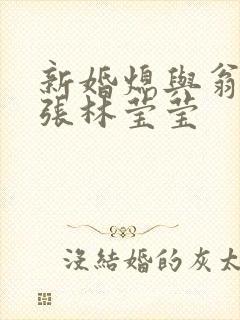 新婚熄與翁
張林莹莹
沒結婚的灰太